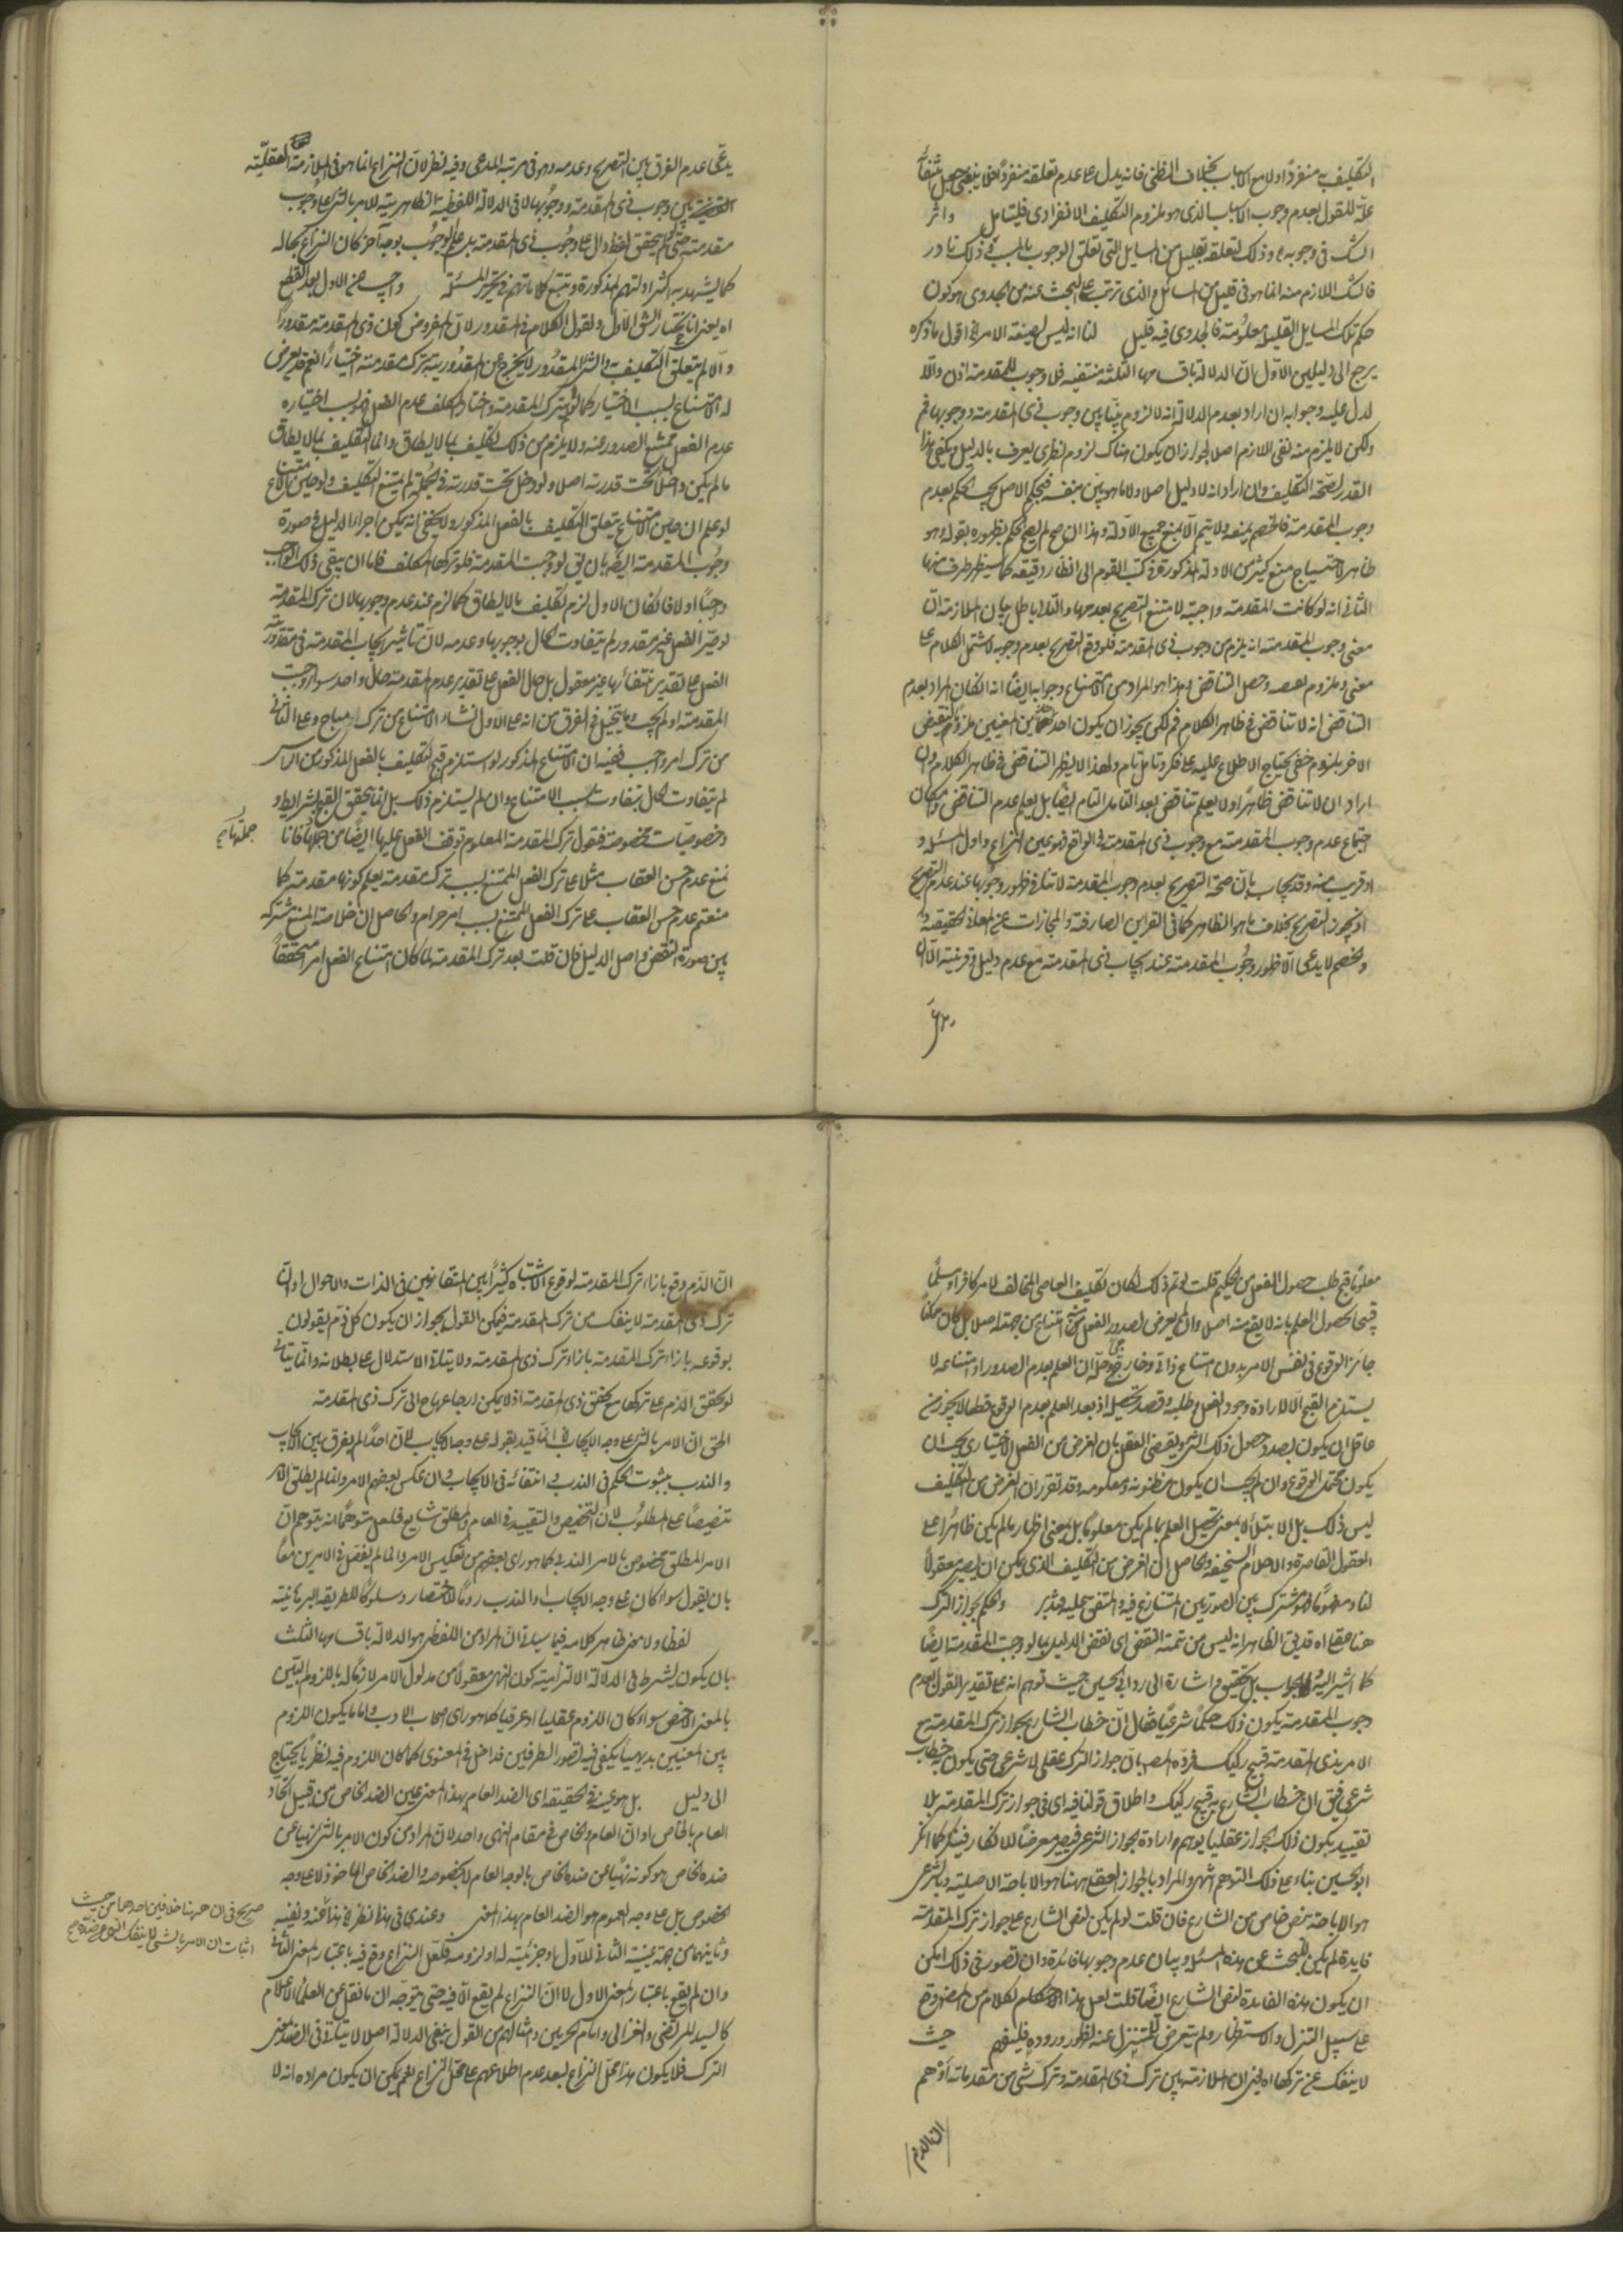 التكليف به منفردا اولا مع الاسباب بخلاف الظني فانه يدل على عدم تعلقه منفردا فلا ينبغي جعل
علة للقول بعدم وجوب الاسباب الذي هو ملزوم التكليف الانفرادي فليتامل واثر
الشك في وجوبه اه وذلك لتعلقه بقليل من المسايل التي تعلق الوجوب بالمسبب في ذلك نادر
فالشك اللازم منه انما هو في قليل من المسائل والذي ترتب على البحث عنه من الجدوى هو كون
حكم تلك المسايل القليلة معلومة فالجدوى فيه قليل لنا انه ليس لصيغة الامر اه اقول ما ذكره
يرجع الى دليلين الاول ان الدلالة باقسامها الثلثة منتفية فلا وجوب للمقدمة اذن والا
لدل عليه وجوابه ان اراد بعدم الدلالة انه لا لزوم بينا بين وجوب ذي المقدمة ووجوبها فم
ولكن لا يلزم منه نفي اللازم اصلا لجواز ان يكون هناك لزوم نظري يعرف بالدليل ويكفي هذا
القدر لصحة التكليف وان اراد انه لا دليل اصلا ولا ما هو بين بنفسه فبحكم الاصل يجب الحكم بعدم
وجوب المقدمة فالخصم يمنعه ولا يتم الا بمنع جميع الادلة وهذا ان صح لم يصح الحكم بظهوره بقوله وهو
ظاهر لاحتياج منع كثير من الادلة المذكورة في كتب القوم الى انظار دقيقة كما سيظهر طرف منها
الثاني انه لو كانت المقدمة واجبة لامتنع التصريح بعدمها والتالي باطل بيان الملازمة ان
معنى وجوب المقدمة انه يلزم من وجوب ذي المقدمة فلو وقع التصريح بعدم وجوبه لاشتمل الكلام على
معنى وملزوم نقيضه وحصل التناقض وهذا هو المراد من الامتناع وجوابه ايضا انه ان كان المراد بعدم
التناقض انه لا تناقض في ظاهر الكلام فم لكن يجوز ان يكون احد المعنيين ملزوم لنقيض
الاخر بلزوم خفي يحتاج الاطلاع عليه على فكر وتامل تام ولهذا لا يظهر التناقض في ظاهر الكلام وان
اراد ان لا تناقض ظاهرا ولا يعلم تناقض بعد التامل التام ايضا بل يعلم عدم التناقض وامكان
اجتماع عدم وجوب المقدمة مع وجوب ذي المقدمة في الواقع فهو عين النزاع واول المسئلة
او قريب منه وقد يجاب بان صحة التصريح بعدم وجوب المقدمة لا تنافي ظهور وجوبها عند عدم التصريح
اذ يجوز التصريح بخلاف ما هو الظاهر كما في القراين الصارفة والمجازات عن المعاني الحقيقية
والخصم لا يدعي الا ظهور وجوب المقدمة عند ايجاب ذي المقدمة مع عدم دليل وقرينة الا ان
يدعى عدم الفرق بين التصريح وعدمه وهو في مرتبة المدعى وفيه نظر لان النزاع انما هو في الملازمة العقلية
بين وجوب ذي المقدمة ووجوبها لا في الدلالة اللفظية الظاهرية للامر بالشئ على وجوب
مقدمته حتى لو لم يتحقق لفظ دال على وجوب ذي المقدمة بل علم الوجوب بوجه آخر كان النزاع بحاله
كما يشهد به اكثر ادلتهم المذكورة وتتبع كلماتهم في تحرير المسئلة واجيب عن الاول بعد القطع
اه يعني انا نختار الشق الاول ونقول الكلام في المقدور لان المفروض كون ذي المقدمة مقدورا
والا لم يتعلق التكليف به والشئ المقدور لا يخرج عن المقدورية بترك مقدمته اختيارا نعم قد يعرض
له الامتناع بسبب الاختيار كما لو ترك المقدمة واختار المكلف عدم الفعل فبسبب اختياره
عدم الفعل يمتنع الصدور عنه ولا يلزم من ذلك تكليف بما لا يطاق وانما التكليف بما لا يطاق
ما لم يكن داخلا تحت قدرته اصلا ولو دخل تحت قدرته في الجملة لم يمتنع التكليف ولو حين الامتناع
لو علم ان حين الامتناع يتعلق التكليف بالفعل المذكور ولا يخفى انه يمكن اجراء الدليل في صورة
وجوب المقدمة ايضا بان يق لو وجبت المقدمة فلو تركها المكلف فاما ان يبقى ذلك الواجب
واجبا اولا فان كان الاول لزم تكليف ما لا يطاق كما لزم عند عدم وجوبها لان ترك المقدمة
لو صير الفعل غير مقدور لم يتفاوت الحال بوجوبها وعدمه لان تاثير ايجاب المقدمة في مقدورية
الفعل على تقدير انتفائها غير معقول بل حال الفعل على تقدير عدم المقدمة حال واحد سواء وجبت
المقدمة او لم يجب وما يتخيل في الفرق من انه على الاول نشاء الامتناع من ترك مباح وعلى الثاني
من ترك امر واجب ففيه ان الامتناع المذكور لو استلزم قبح التكليف بالفعل المذكور
لم يتفاوت الحال بتفاوت سبب الامتناع وان لم يستلزم ذلك بل انما يتحقق القبح بشرايط
وخصوصيات مخصوصة فنقول ترك المقدمة المعلوم توقف الفعل عليها ايضا من جملتها فانا
جملتها صح
نمنع عدم حسن العقاب مثلا على ترك الفعل الممتنع بسبب ترك مقدمة يعلم كونها مقدمة كما
منعتم عدم حسن العقاب على ترك الفعل الممتنع بسبب امر حرام والحاصل ان خلاصة المنع مشتركة
بين صورة النقض واصل الدليل فان قلت بعد ترك المقدمة لما كان امتناع الفعل امرا محققا
معلوما قبح طلب حصول الفعل من الحكيم قلت لو تم ذلك لكان تكليف العاصي المخالف للامر كافرا ومسلما
قبيحا لحصول العلم بانه لا يقع منه اصلا وان لم يعرض لصدور الفعل امتناع من جهته اصلا بل كان ممكنا
جائز الوقوع في نفس الامر بدون امتناع ذاتي وخارجي وحله ان العلم بعدم الصدور او امتناعه لا
يستلزم القبح الا لارادة وجود الفعل وطلبه وقصد تحصيله اذ بعد العلم بعدم الوقوع قطعا لا يجوز من
عاقل ان يكون بصدد حصول ذلك الشئ ويقتضي العقل بان الغرض من الفعل الاختياري يجب ان
يكون محتمل الوقوع وان لم يجب ان يكون مظنونه ومعلومه وقد تقرر ان الغرض من التكليف
ليس ذلك بل الابتلاء لا بمعنى تحصيل العلم بما لم يكن معلوما بل بمعنى اظهار ما لم يكن ظاهرا على
العقول القاصرة والاحلام السخيفة والحاصل ان الغرض من التكليف الذي يمكن ان يصير معقولا
لنا ومفهوما فهو مشترك بين الصورتين المتنازع فيه والمتفق عليه فتدبر والحكم بجواز الترك
هنا عقلي اه قد يق الظاهر انه ليس من تتمة النقض اي نقض الدليل بما لو وجبت المقدمة ايضا
كما اشير اليه بل تحقيق واشارة الى رد ابي الحسين حيث توهم انه على تقدير القول بعدم
وجوب المقدمة يكون ذلك حكما شرعيا فقال ان خطاب الشارع بجواز ترك المقدمة مع
الامر بذي المقدمة قبيح ركيك فرده المصه بان جواز الترك عقلي لا شرعي حتى يكون فيه خطاب
شرعي فيق ان خطاب الشارع به قبيح ركيك واطلاق قولنا فيه اي في جواز ترك المقدمة بلا
تقييد بكون ذلك الجواز عقليا يوهم ارادة الجواز الشرعي فيصير معرضا للانكار فينكر كما انكر
ابو الحسين بناء على ذلك التوهم انتهى والمراد بالجواز العقلي ههنا هو الاباحة الاصلية وبالشرعي
هو الاباحة بنص خاص من الشارع فان قلت لو لم يكن لنص الشارع على جواز ترك المقدمة
فايدة لم يكن للبحث عن هذه المسئلة وبيان عدم وجوبها فائدة وان تصور في ذلك امكن
ان يكون هذه الفايدة لنص الشارع ايضا قلت لعل هذا الكلام من المصه وقع
على سبيل التنزل والاستظهار ولم يتعرض للمتنزل عنه لظهور وروده فليفهم حيث
لا ينفك عن تركها اه يعني ان الملازمة بين ترك ذي المقدمة وترك شئ من مقدماته اوهم
ان الذم
ان الذم وقع بازاء ترك المقدمة لوقوع الاشتباه كثيرا بين المتقارنين في الذات والاحوال او ان
ترك ذي المقدمة لا ينفك من ترك المقدمة فيمكن القول بجواز ان يكون كل ذم يقولون
بوقوعه بازاء ترك المقدمة بازاء ترك ذي المقدمة ولا يتاتى الاستدلال على بطلانه وانما يتاتى
لو تحقق الذم على تركها مع تحقق ذي المقدمة اذ لا يمكن ارجاعها ح الى ترك ذي المقدمة
الحق ان الامر بالشئ على وجه الايجاب اه انما قيد بقوله على وجه الايجاب لان احدا لم يفرق بين الايجاب
والندب بثبوت الحكم في الندب وانتفائه في الايجاب وان عكس بعضهم الامر وانما لم يطلق الامر
تنصيصا على المطلوب لان التخصيص والتقييد في العام والمطلق شايع فلعل متوهما انه يتوهم ان
الامر المطلق مخصوص بالامر الندبي كما هو راى بعضهم من تعكيس الامر وانما لم يفصل في الامرين معا
بان يقول سواء كان على وجه الايجاب او الندب روما للاختصار وسلوكا للطريقة البرهانية
لفظا ولا معنى ظاهر كلامه فيما سياتي ان المراد من اللفظي هو الدلالة باقسامها الثلث
بان يكون يشرط في الدلالة الالتزامية كون النهي معقولا من مدلول الامر لازما له باللزوم البين
بالمعنى الاخص سواء كان اللزوم عقليا او عرفيا كما هو راى اصحاب الادب واما ما يكون اللزوم
بين المعنيين بديهيا يكفي فيه تصور الطرفين فداخل في المعنوي كما كان اللزوم فيه نظريا يحتاج
الى دليل بل هو عينه في الحقيقة اي الضد العام بهذا المعنى عين الضد الخاص من قبيل اتحاد
العام بالخاص او ان العام والخاص في مقام النهي واحد لان المراد من كون الامر بالشئ نهيا عن
ضده الخاص هو كونه نهيا عن ضده الخاص بالوجه العام لا بخصوصه والضد الخاص الماخوذ لا على وجه
الخصوص بل على وجه العموم هو الضد العام بهذا المعنى وعندي في هذا نظر
صريح في ان ههنا خلافين احدهما من حيث
اثبات ان الامر بالشئ لا ينفك النهي عن ضده صح
وثانيهما من جهة عينية الثاني للاول او جزئيته له او لزومه فلعل النزاع وقع فيه باعتبار المعنى الثاني
وان لم يقع باعتبار المعنى الاول لا ان النزاع لم يقع الا فيه حتى يتوجه ان ما نقل عن العلماء الاعلام
كالسيد المرتضى والغزالي وامام الحرمين وامثالهم من القول بنفي الدلالة اصلا لا يتاتى في الضد بمعنى
الترك فلا يكون هذا محل النزاع لبعد عدم اطلاعهم على محل النزاع نعم يمكن ان يكون مراده انه لا